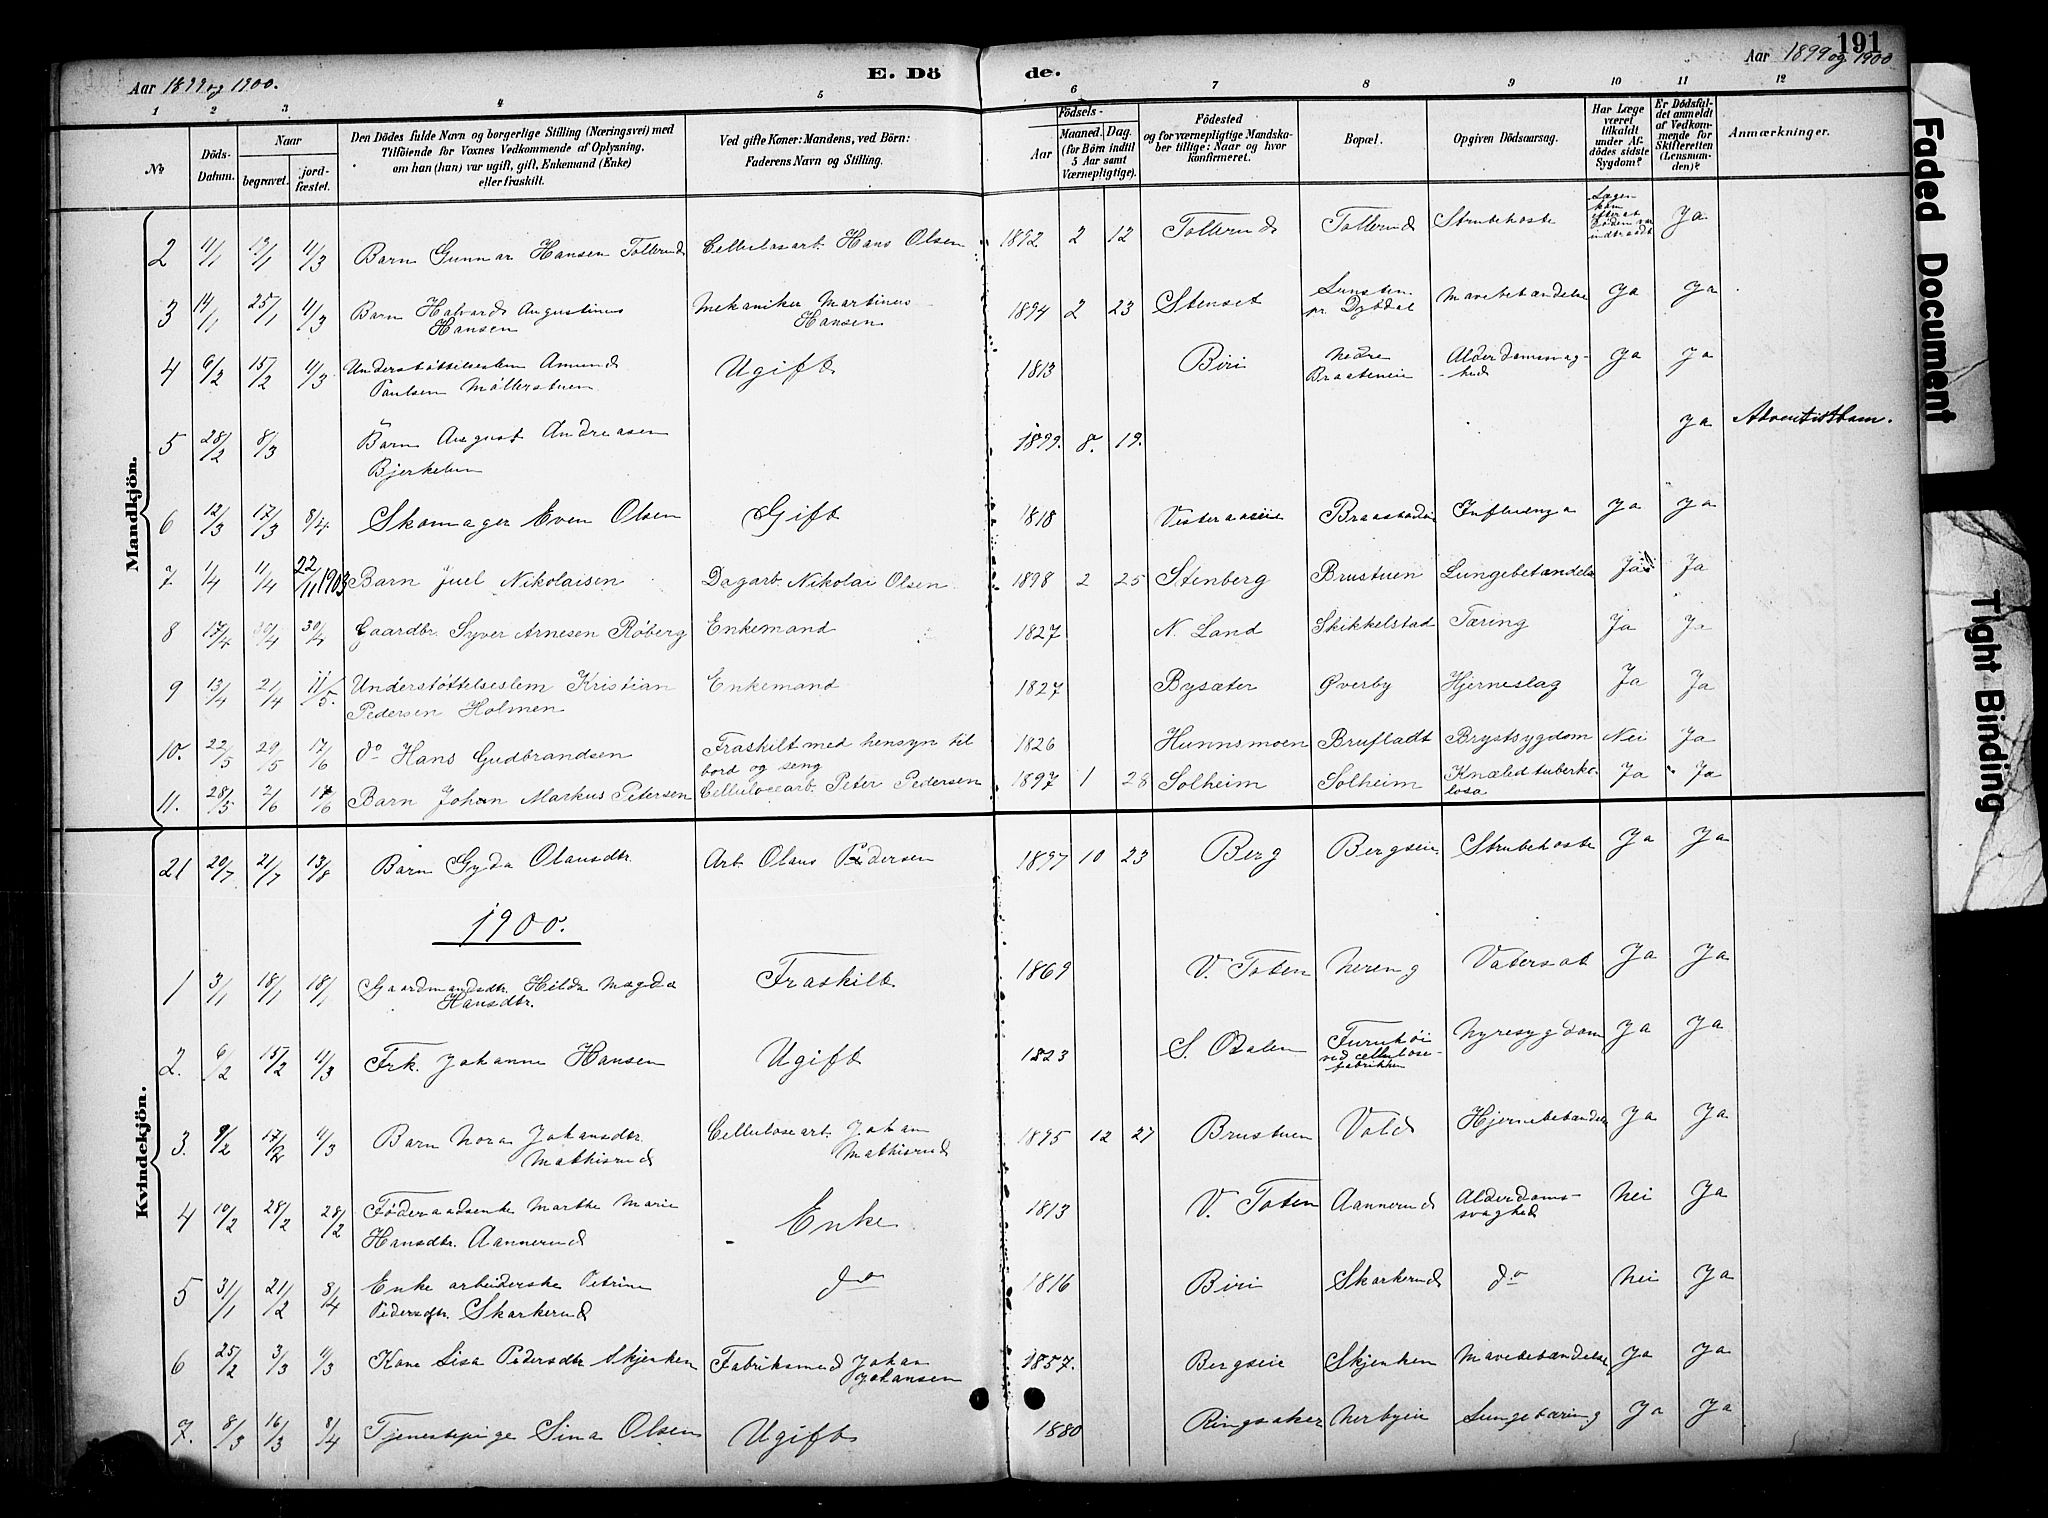 191
Aar 1899 og 1900.
E. Dö
de.
Aar 1899 og 1900
1 2 3 4 5 6 7 8 9 10 11 12
No.
Döds-Datum.
Naar
begravet.
jordfæstet.
Den Dödes fulde Navn og borgerlige Stilling (Næringsvei) med
Tilföiende for Voxnes Vedkommende af Oplysning,
om han (hun) var ugift, gift, Enkemand (Enke)
eller fraskilt.
Ved gifte Koner: Mandens, ved Börn:
Faderens Navn og Stilling.
Födsels-
Aar
Maaned. Dag.
(for Börn indtil
5 Aar samt
Værnepligtige).
Födested
og for værnepligtige Mandskaber tillige: Naar og hvor
konfirmeret.
Bopæl.
Opgiven Dödsaarsag.
Har Læge
været
tilkaldt
under Afdödes sidste
Sygdom?
Er Dödsfaldet anmeldt
af Vedkommende for
Skifteretten
(Lensmanden)?
Anmærkninger.
Mandkjön.
2 11/1 19/1 11/3 Barn Gunnar Hansen Tollerud Cellulosearb. Hans Olsen 1892 2 12 Tollerud Tollerud Strubehoste Lægen kom efterat Döden var indtraadt Ja
3 14/1 25/1 11/3 Barn Halvard Augustinus Mekaniker Martinus 1894 2 23 Stenset pr. Dybdal Mavebetændelse Ja Ja
Hansen Hansen
4 6/2 15/2 11/3 Understøttelseslem Amund Ugift 1813 Biri Nedre Braateneie Alderdomssvag-hed Ja Ja
Paulsen Möllerstuen
5 28/2 8/3 Barn August Andreasen 1899. 8. 19. Ja Adventistbarn.
Bjerkelund
6 12/3 17/3 8/4 Skomager Even Olsen Gift 1818 Vesteraaseie Influenza Ja Ja
7. 1/4 11/4 22/11 1903 Barn Juel Nikolaisen Dagarb. Nikolai Olsen 1898 2 25 Stenberg Brustuen Lungebetændelse Ja Ja
8 17/4 30/4 30/4 Gaardbr. Syver Arnesen Røberg Enkemand 1827 N. Land Skikkelstad Tæring Ja Ja
9 13/4 21/4 11/5. Understøttelseslem Kristian Enkemand 1827 Bysæter Øverby Hjerneslag Ja Ja
Pedersen Holmen
10. 22/5 29/5 17/6 do Hans Gudbrandsen Fraskilt med hensyn til bord og seng 1826 Hunnsmoen Brufladt Brystsygdom Nei Ja
11. 28/5 2/6 17/6 Barn Johan Markus Petersen Cellulosearb. Peter Pedersen 1897 1 28 Solheim Solheim Knæledtuberkolosa Ja Ja
Kvindekjön.
21 20/7 21/7 13/8 Barn Gyda Olausdtr. Arb. Olaus Pedersen 1897 10 23 Berg Bergseie Strubehoste Ja Ja
1900.
1 3/1 18/1 18/1 Gaardmandsdtr. Hilda Magda Fraskilt 1869 V. Toten Nereng Vatersot Ja Ja
Hansdtr.
2. 6/2 15/2 11/3 Frk. Johanne Hansen Ugift 1823 S. Odalen Furuhöi ved cellulosefabrikken Nyresygdom Ja Ja
3. 9/2 17/2 11/3 Barn Nora Johansdtr. Cellulosearb. Johan 1895 12 27 Brustuen Vold Hjernebetændelse Ja Ja
Mathisrud Mathisrud
4 19/2 28/2 28/2 Föderaadsenke Marthe Marie Enke 1813 V. Toten Aannerud Alderdoms-svaghed Nei Ja
Hansdtr. Aannerud
5 31/1 21/2 8/4 Enke arbeiderske Petrine do 1816 Biri Skarkerud do Nei Ja
Pedersdtr. Skarkerud
6 25/2 3/3 11/3 Kone Lisa Pedersdtr. Skjenken Fabriksmed Johan 1857. Bergseie Skjenken Mavebetændelse Ja Ja
Johansen
7. 8/3 16/3 8/4 Tjenestepige Sina Olsen Ugift 1880 Ringsaker Nerbyeie Lungetæring Ja Ja
Faded Document
Tight Binding